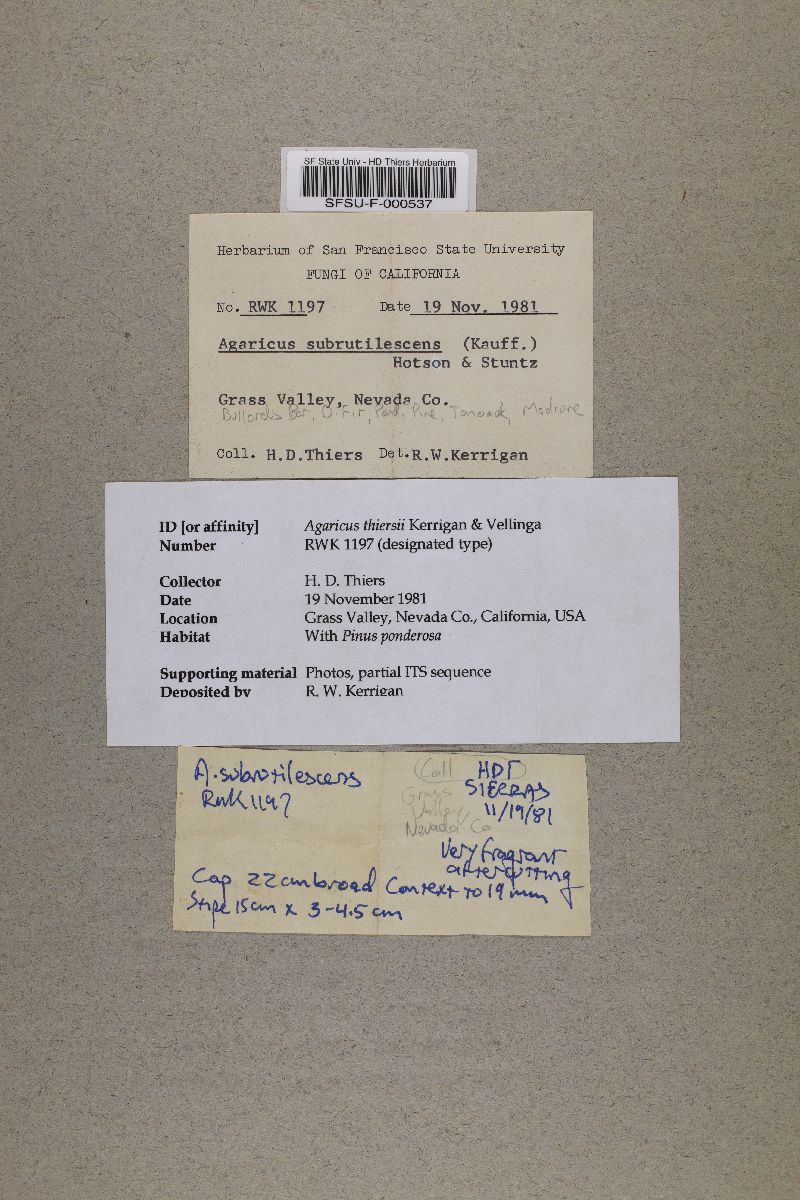 SF State Univ - HD Thiers Herbarium
SFSU-F-000537
Herbarium of San Francisco State University
FUNGI OF CALIFORNIA
No. RWK 1197 Date 19 Nov. 1981
Agaricus subrutilescens (Kauff.)
Hotson & Stuntz
Grass Valley, Nevada Co.
Bullards Bar, D. Fir, Pond. Pine, Tanoak, Madrone
Coll. H.D.Thiers Det. R.W.Kerrigan
ID [or affinity] Agaricus thiersii Kerrigan & Vellinga
Number RWK 1197 (designated type)
Collector H. D. Thiers
Date 19 November 1981
Location Grass Valley, Nevada Co., California, USA
Habitat With Pinus ponderosa
Supporting material Photos, partial ITS sequence
Deposited by R. W. Kerrigan
A. subrutilescens
RWK 1197
Coll HDT
SIERRAS
Grass Valley, Nevada Co
11/19/81
Very fragrant
after cutting
Cap 22 cm broad Context to 19 mm
Stipe 15 cm x 3-4.5 cm